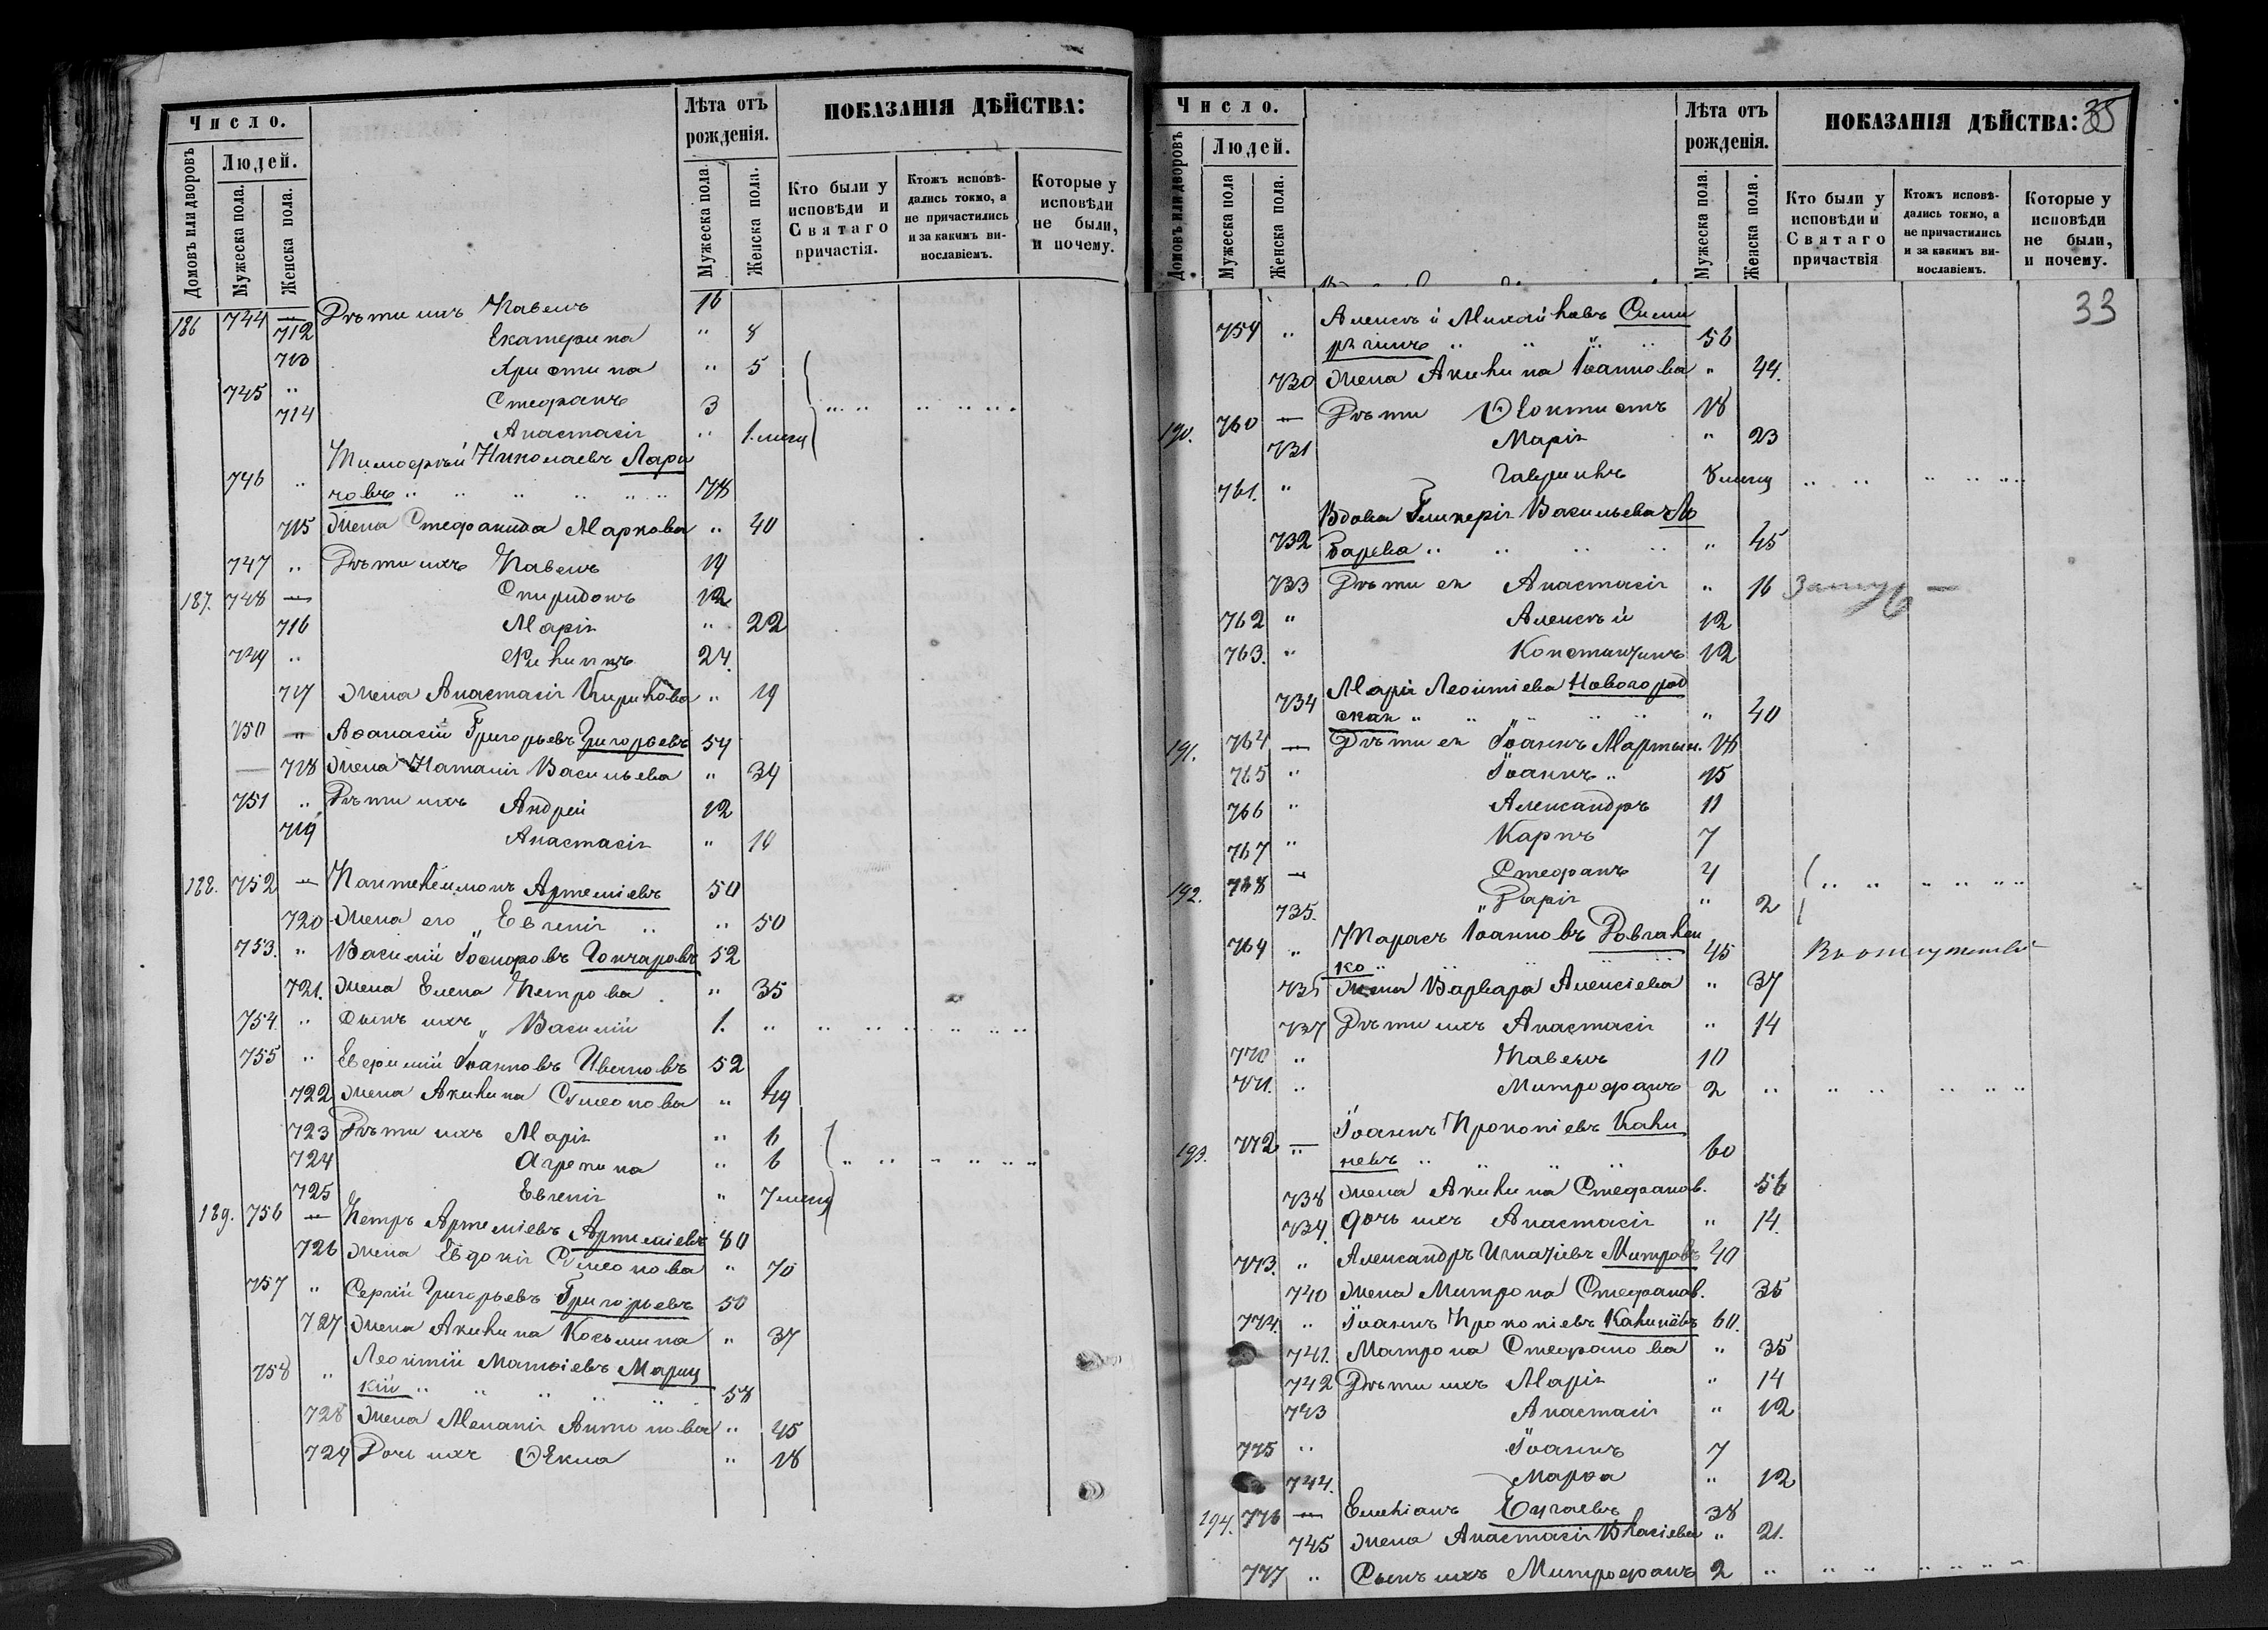 Число.
Лѣта отъ рожденія.
ПОКАЗАНІЯ ДѢЙСТВА:
Домовъ или дворовъ
Людей.
Мужеска пола.
Женска пола.
Мужеска пола.
Женска пола.
Кто были у исповѣди и Святаго причастія.
Ктожъ исповѣдались токмо, а не причастились и за какимъ винословіемъ.
Которые у исповѣди не были, и почему.
186 744 — Дѣти ихъ Павелъ 16
712 Екатерина " 8
713 Христина " 5
745 " Стефанъ 3
714 Анастасія " 1. месец
Тимофей Николаевъ Лари
746 " " " "
715 Жена Стефанида Маркова " 40
747 " Дѣти ихъ Павелъ 19
187. 748 — Спиридонъ 12
716 Марія " 22
749 " Филиппъ 24.
717 Жена Анастасія Кирилова " 19
750 — Аѳанасій Григорьевъ Григорьевъ 54
— 718 Жена Наталія Васильева " 34
751 " Дѣти ихъ Андрей 12
719 Анастасія " 10
188. 752 — Пантелеимонъ Артеміевъ 50
720 Жена его Евгенія " 50
753. " Василій Гончаровъ 52
721. Жена Елена Петрова " 35
754 " Сынъ ихъ Василій 1. "
755 " Ефимій Іоанновъ Ивановъ 52
722 Жена Акилина Симеонова " 49
723 Дѣти ихъ Марія " 6
724 Агрепина " 6
725 Евгенія " 7 месец
189. 756 — Петръ Артеміевъ Артеміевъ 80
726 Жена Евдокія Симеонова " 70
757 " Сергій Григорьевъ Григорьевъ 50
727 Жена Акилина Косьмина " 37
758 " Леонтій Матѳіевъ Мариц
кій " " " " 58
728 Жена Меланія Антонова " 45
729 Дочь ихъ Ѳекла " 18
Число.
Лѣта отъ рожденія.
ПОКАЗАНІЯ ДѢЙСТВА:
Домовъ или дворовъ
Людей.
Мужеска пола
Женска пола.
Мужеска пола.
Женска пола.
Кто были у исповѣди и Святаго причаствія
Ктожъ исповѣдались токмо, а не причастились и за какимъ винославіемъ.
Которые у исповѣди не были, и почему.
33
759 " Алексѣй Михайловъ
" " " 56
730 Жена Акилина Іоаннова " 44.
190. 760 — Дѣти Ѳеоктистъ 18
731 Марія " 23
761. " Гавриилъ 8 месец
Вдова Гликерія Васильева
732 " " " " 45
733 Дѣти ея Анастасія " 16
762 " Алексѣй 12
763. " Константинъ 12
734 Марія Леонтіева Новогород
ская " " " " " 40
191. 764 — Дѣти ея Іоаннъ Мартын. 18
765 " Іоаннъ " 15
766 " Александръ 11
767 " Карпъ 7
192. 768 — Стефанъ 4
735. Дарія " 2
769 " Тарасъ Іоанновъ Довгален
ко " 45
Жена Варвара Алексіева " 37
737 Дѣти ихъ Анастасія " 14
770 " Павелъ 10
771. " Митрофанъ 2 "
193. 772 — Іоаннъ Прокопіевъ Кали
невъ " " " " 60
738 Жена Акилина Стефанов. 56
739. Дочь ихъ Анастасія " 14.
773. " Александръ Игнатіевъ Митровъ 40
740 Жена Митрона Стефанов. 35
774. " Іоаннъ Прокопіевъ Калиневъ 60.
741. Матрона Стефанова " 35
742 Дѣти ихъ Марія " 14
743 Анастасія " 12
775 " Іоаннъ 7
744. Марѳа " 12
194. 776 — Емеліанъ 38
745 Жена Анастасія Власіева " 21.
777 " Сынъ ихъ Митрофанъ 2 "